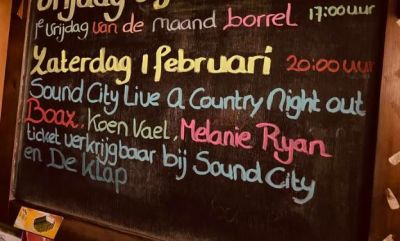 Vrijdag
17:00uur
1e vrijdag van de maand borrel
Zaterdag 1 februari 20:00uur
Sound City Live A Country Night out
Boax, Koen Vael, Melanie Ryan
ticket verkrijgbaar bij Sound City
en De Klap